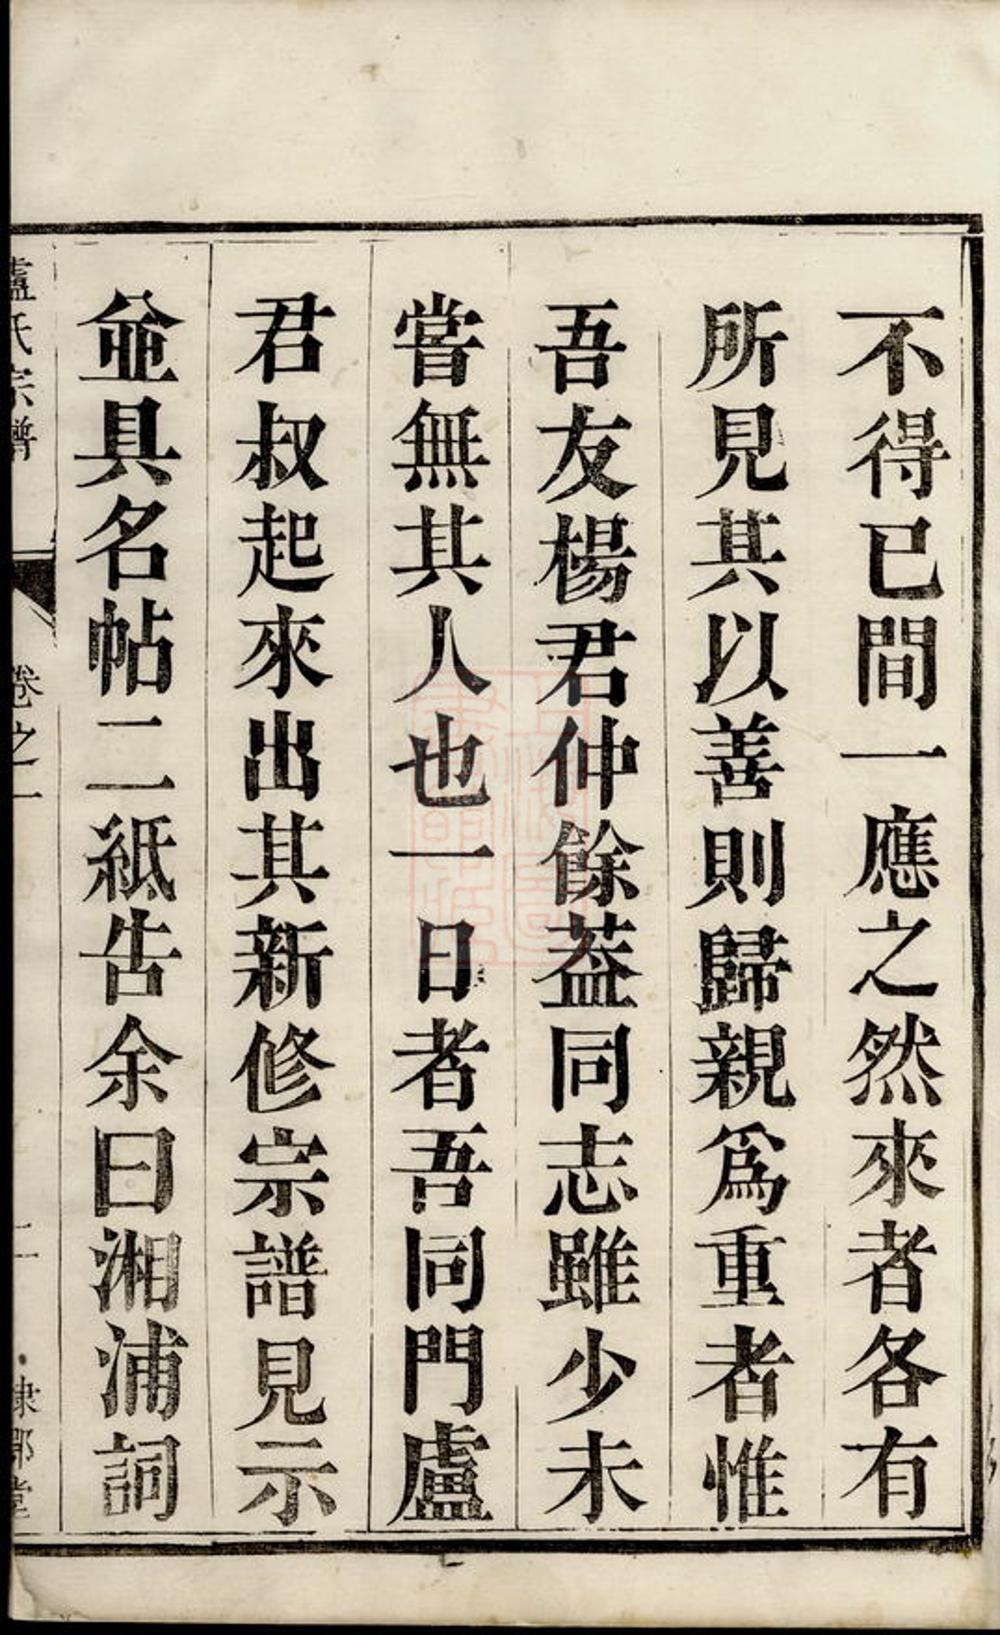 不得已間一應之然來者各有
所見其以善則歸親爲重者惟
吾友楊君仲餘葢同志雖少未
嘗無其人也一日者吾同門盧
君叔起來出其新修宗譜見示
並具名帖二紙告余曰湘浦詞
盧氏宗譜
卷之一
二